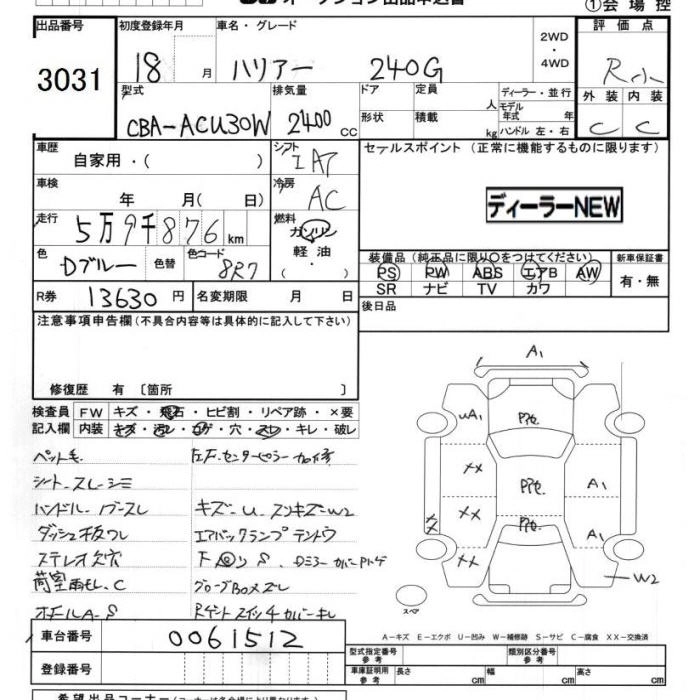 オークション出品申込書
①会場控
出品番号 3031
初度登録年月 18 月
車名・グレード ハリアー 240G
2WD・4WD
評価点 R小
外装 C 内装 C
型式 CBA-ACU30W
排気量 2400 CC
ドア 形状
定員 人
積載 kg
ディーラー・並行
モデル年式 年
ハンドル 左・右
車歴 自家用・( )
シフト IAT
セールスポイント (正常に機能するものに限ります)
車検 年 月( 日)
冷房 AC
ディーラーNEW
走行 5万9千876 km
燃料 ガソリン 軽油 ・( )
色 Dブルー 色替 色コード 8R7
装備品 (純正品に限り○をつけてください)
新車保証書
PS PW ABS エアB AW
有・無
SR ナビ TV カワ
R券 13630円 名変期限 月 日
後日品
注意事項申告欄 (不具合内容等は具体的に記入して下さい)
修復歴 有 〔箇所 〕
検査員記入欄
FW キズ・飛石・ヒビ割・リペア跡・×要
内装 キズ・汚レ・コゲ・穴・スレ・キレ・破レ
ペット毛
シート・スレ・シミ
ハンドル・ノブ・スレ
キズ-U スンキズ-W2
エアバックランプ テントウ
ステレオ欠穴
グローブBOXズレ
A1
UA1 Pte.
XX Pte. A1
XX Pte. A1
XX XX
W2
スペア
A-キズ E-エクボ U-凹み W-補修跡 S-サビ C-腐食 XX-交換済
車台番号 0061512
登録番号
型式指定番号 参考
類別区分番号 参考
車庫証明用 参考 長さ cm 幅 cm 高さ cm
希望出品コーナー